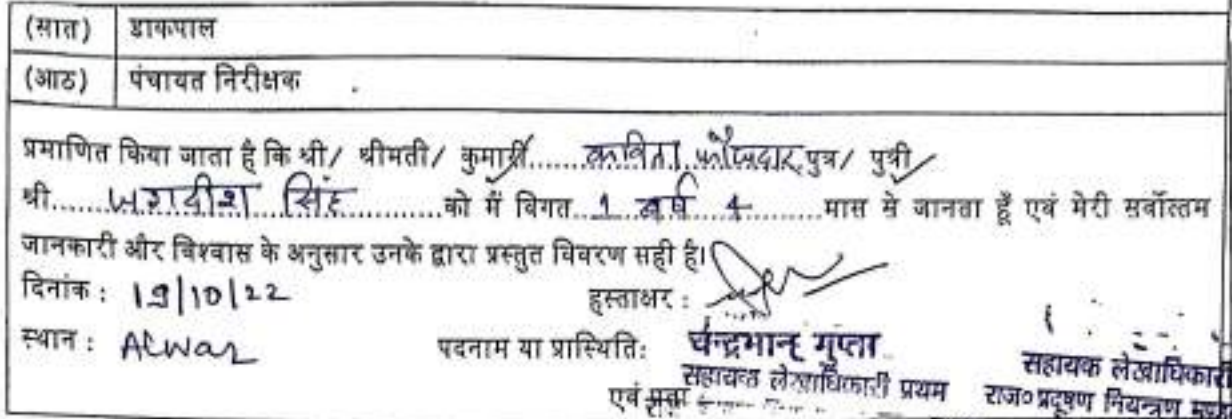 (सात) डाकपाल
(आठ) पंचायत निरीक्षक
प्रमाणित किया जाता है कि श्री/ श्रीमती/ कुमारी...... कविता फौजदार पुत्र/ पुत्री
श्री...... जगदीश सिंह ......को मैं विगत 1 वर्ष 4 ........मास से जानता हूँ एवं मेरी सर्वोत्तम
जानकारी और विश्वास के अनुसार उनके द्वारा प्रस्तुत विवरण सही है।
दिनांक : 19/10/22 हस्ताक्षर :
स्थान : Alwar पदनाम या प्रास्थिति: चन्द्रभान गुप्ता
सहायक लेखाधिकारी प्रथम सहायक लेखाधिकारी
एवं राज० प्रदूषण नियन्त्रण